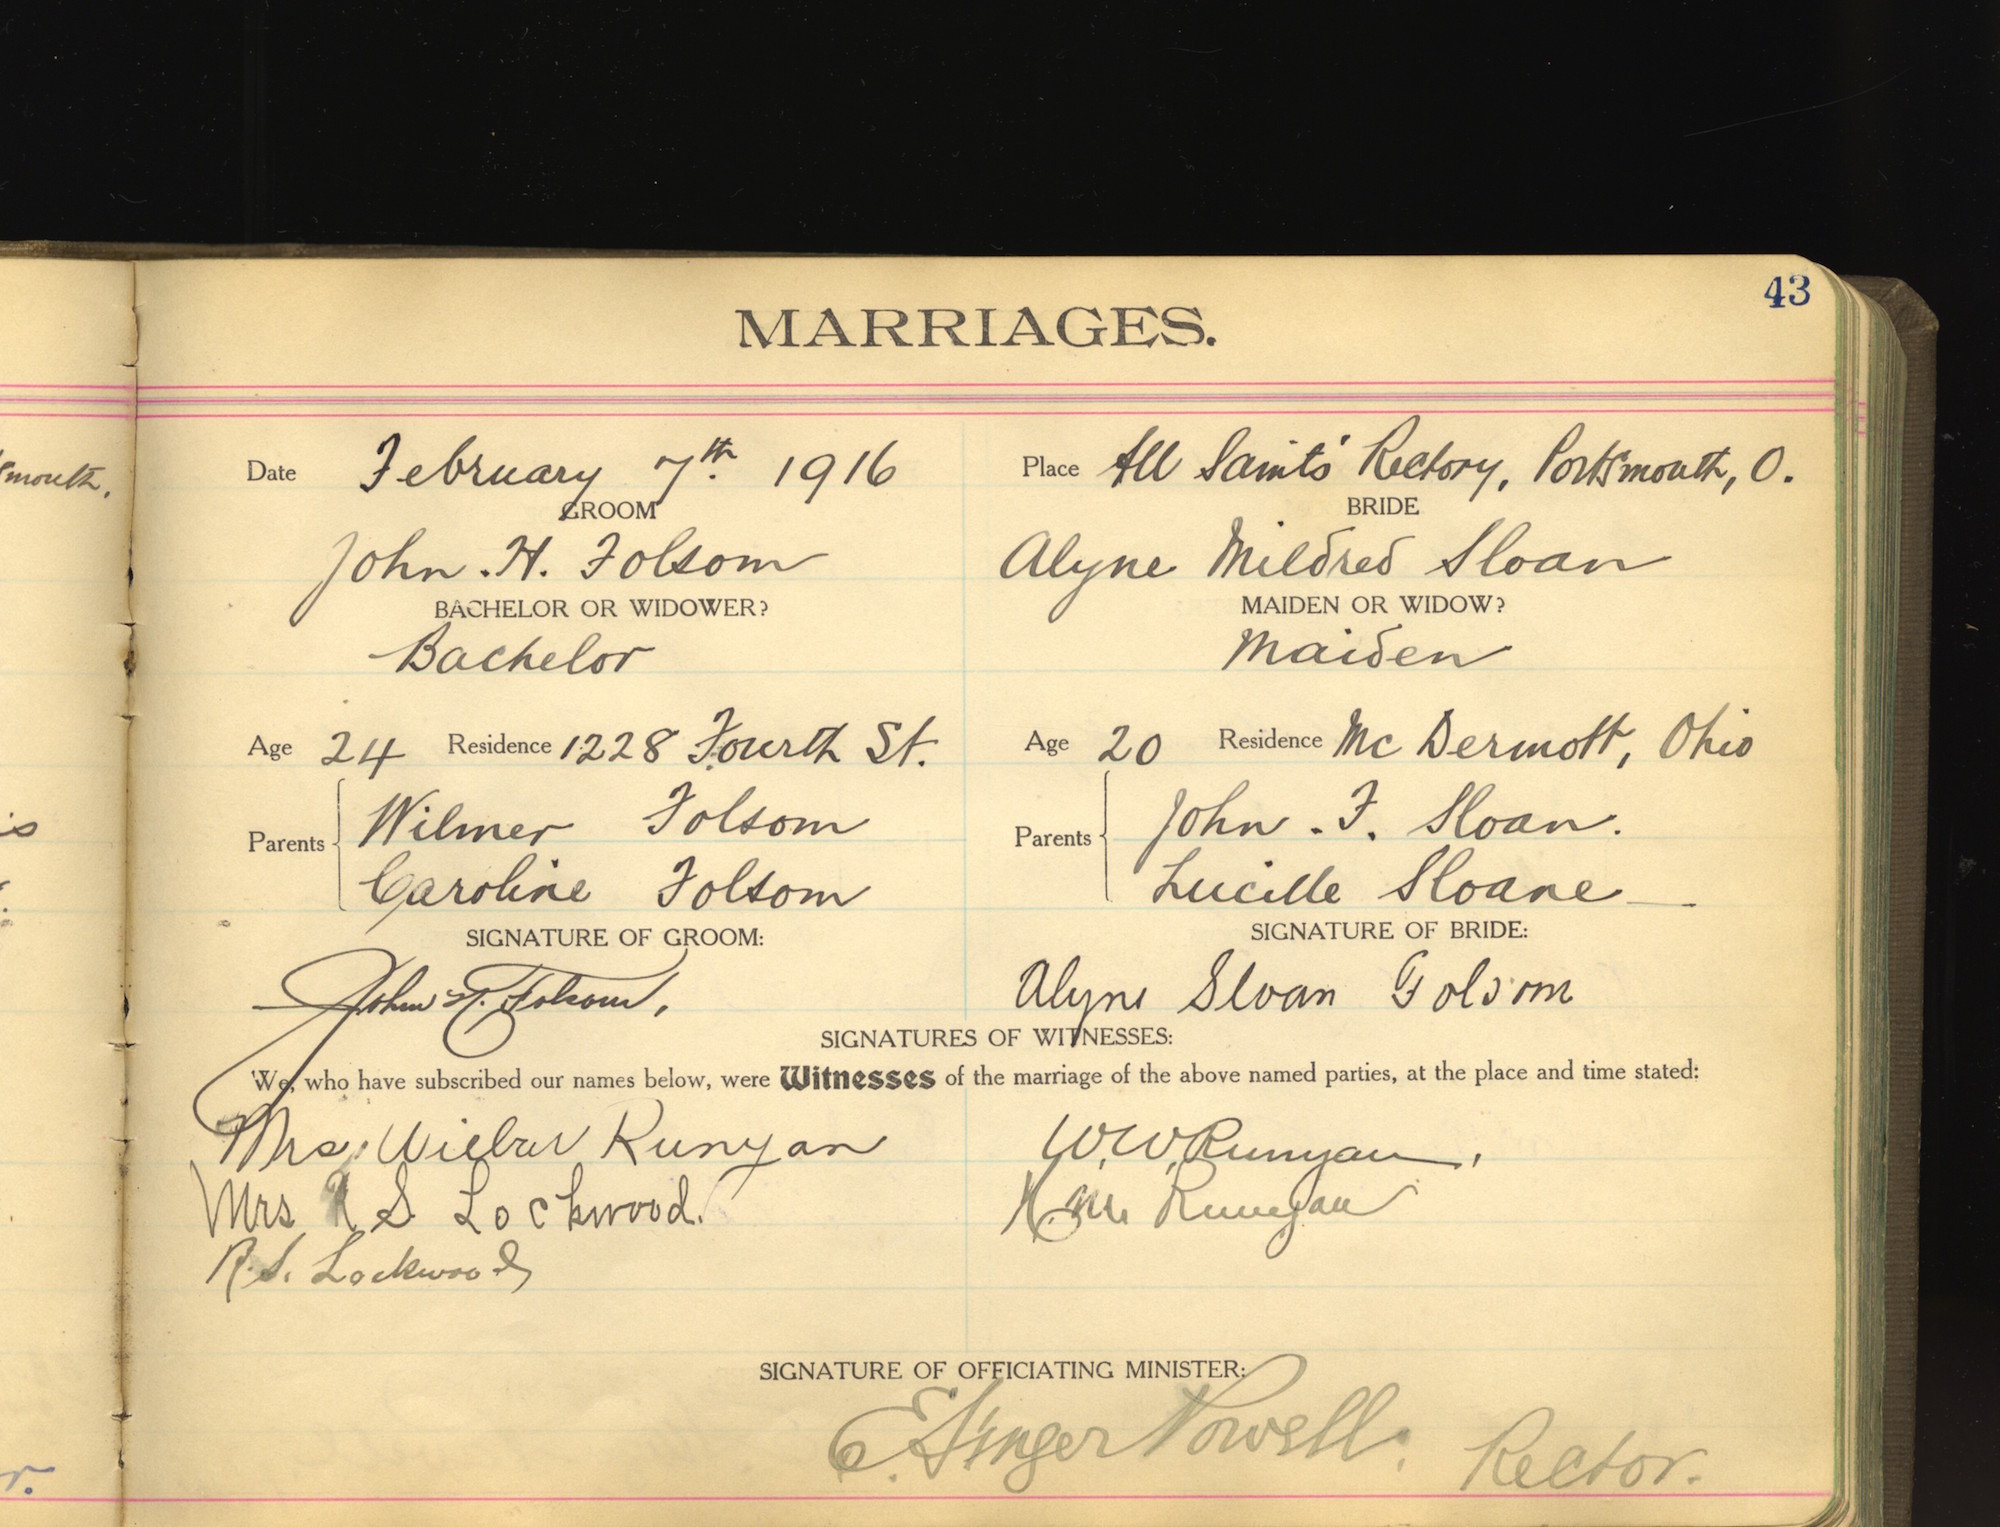 43
MARRIAGES.
smouth.
Date February 7th. 1916 Place All Saints' Rectory, Portsmouth, O.
GROOM BRIDE
John . H. Folsom Alyne Mildred Sloan
BACHELOR OR WIDOWER? MAIDEN OR WIDOW?
Bachelor Maiden
Age 24 Residence 1228 Fourth St. Age 20 Residence Mc Dermott, Ohio
Parents Wilmer Folsom Parents John . F. Sloan.
Caroline Folsom Lucille Sloane
SIGNATURE OF GROOM: SIGNATURE OF BRIDE:
John H. Folsom, Alyne Sloan Folsom
SIGNATURES OF WITNESSES:
We, who have subscribed our names below, were Witnesses of the marriage of the above named parties, at the place and time stated:
Mrs. Wilbur Runyan W.W. Runyan,
Mrs R S Lockwood. Runyan
R.S. Lockwood
SIGNATURE OF OFFICIATING MINISTER:
E. Ainger Powell. Rector.